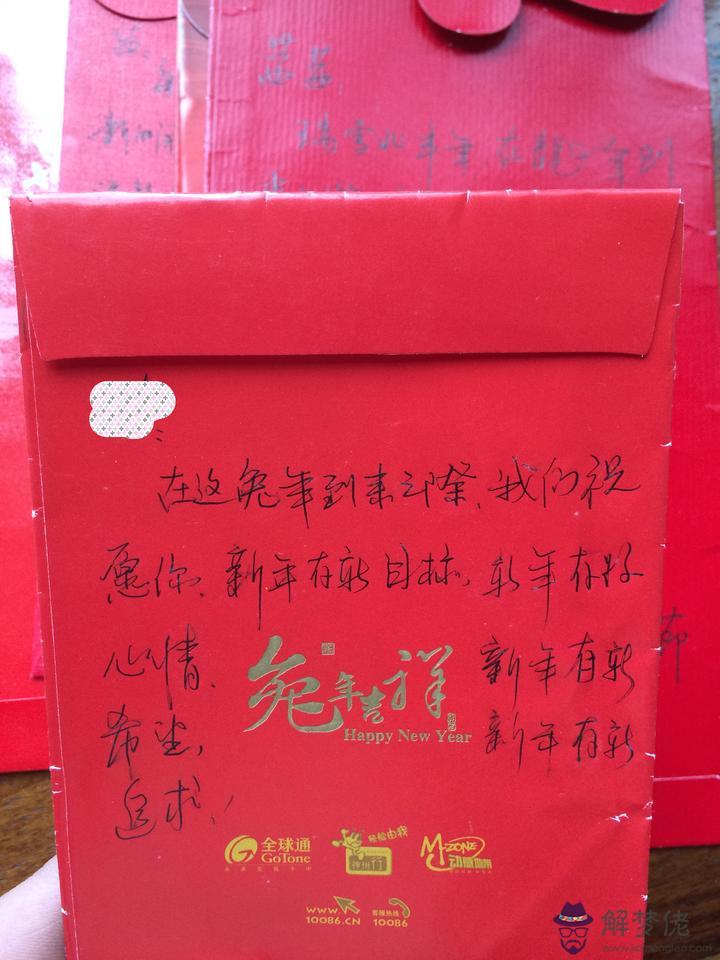 瑞雪兆丰年
在这兔年到来之际、我们祝
愿你、新年有新目标、新年有好
心情、新年有新
希望、新年有新
追求！
兔年吉祥
Happy New Year
全球通
GoTone
轻松由我
神州行
M-ZONE
动感地带
WWW.
10086.CN
客服热线
10086
解梦佬